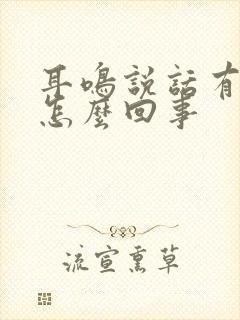 耳鳴説話有
怎麼回事
流宣熏草